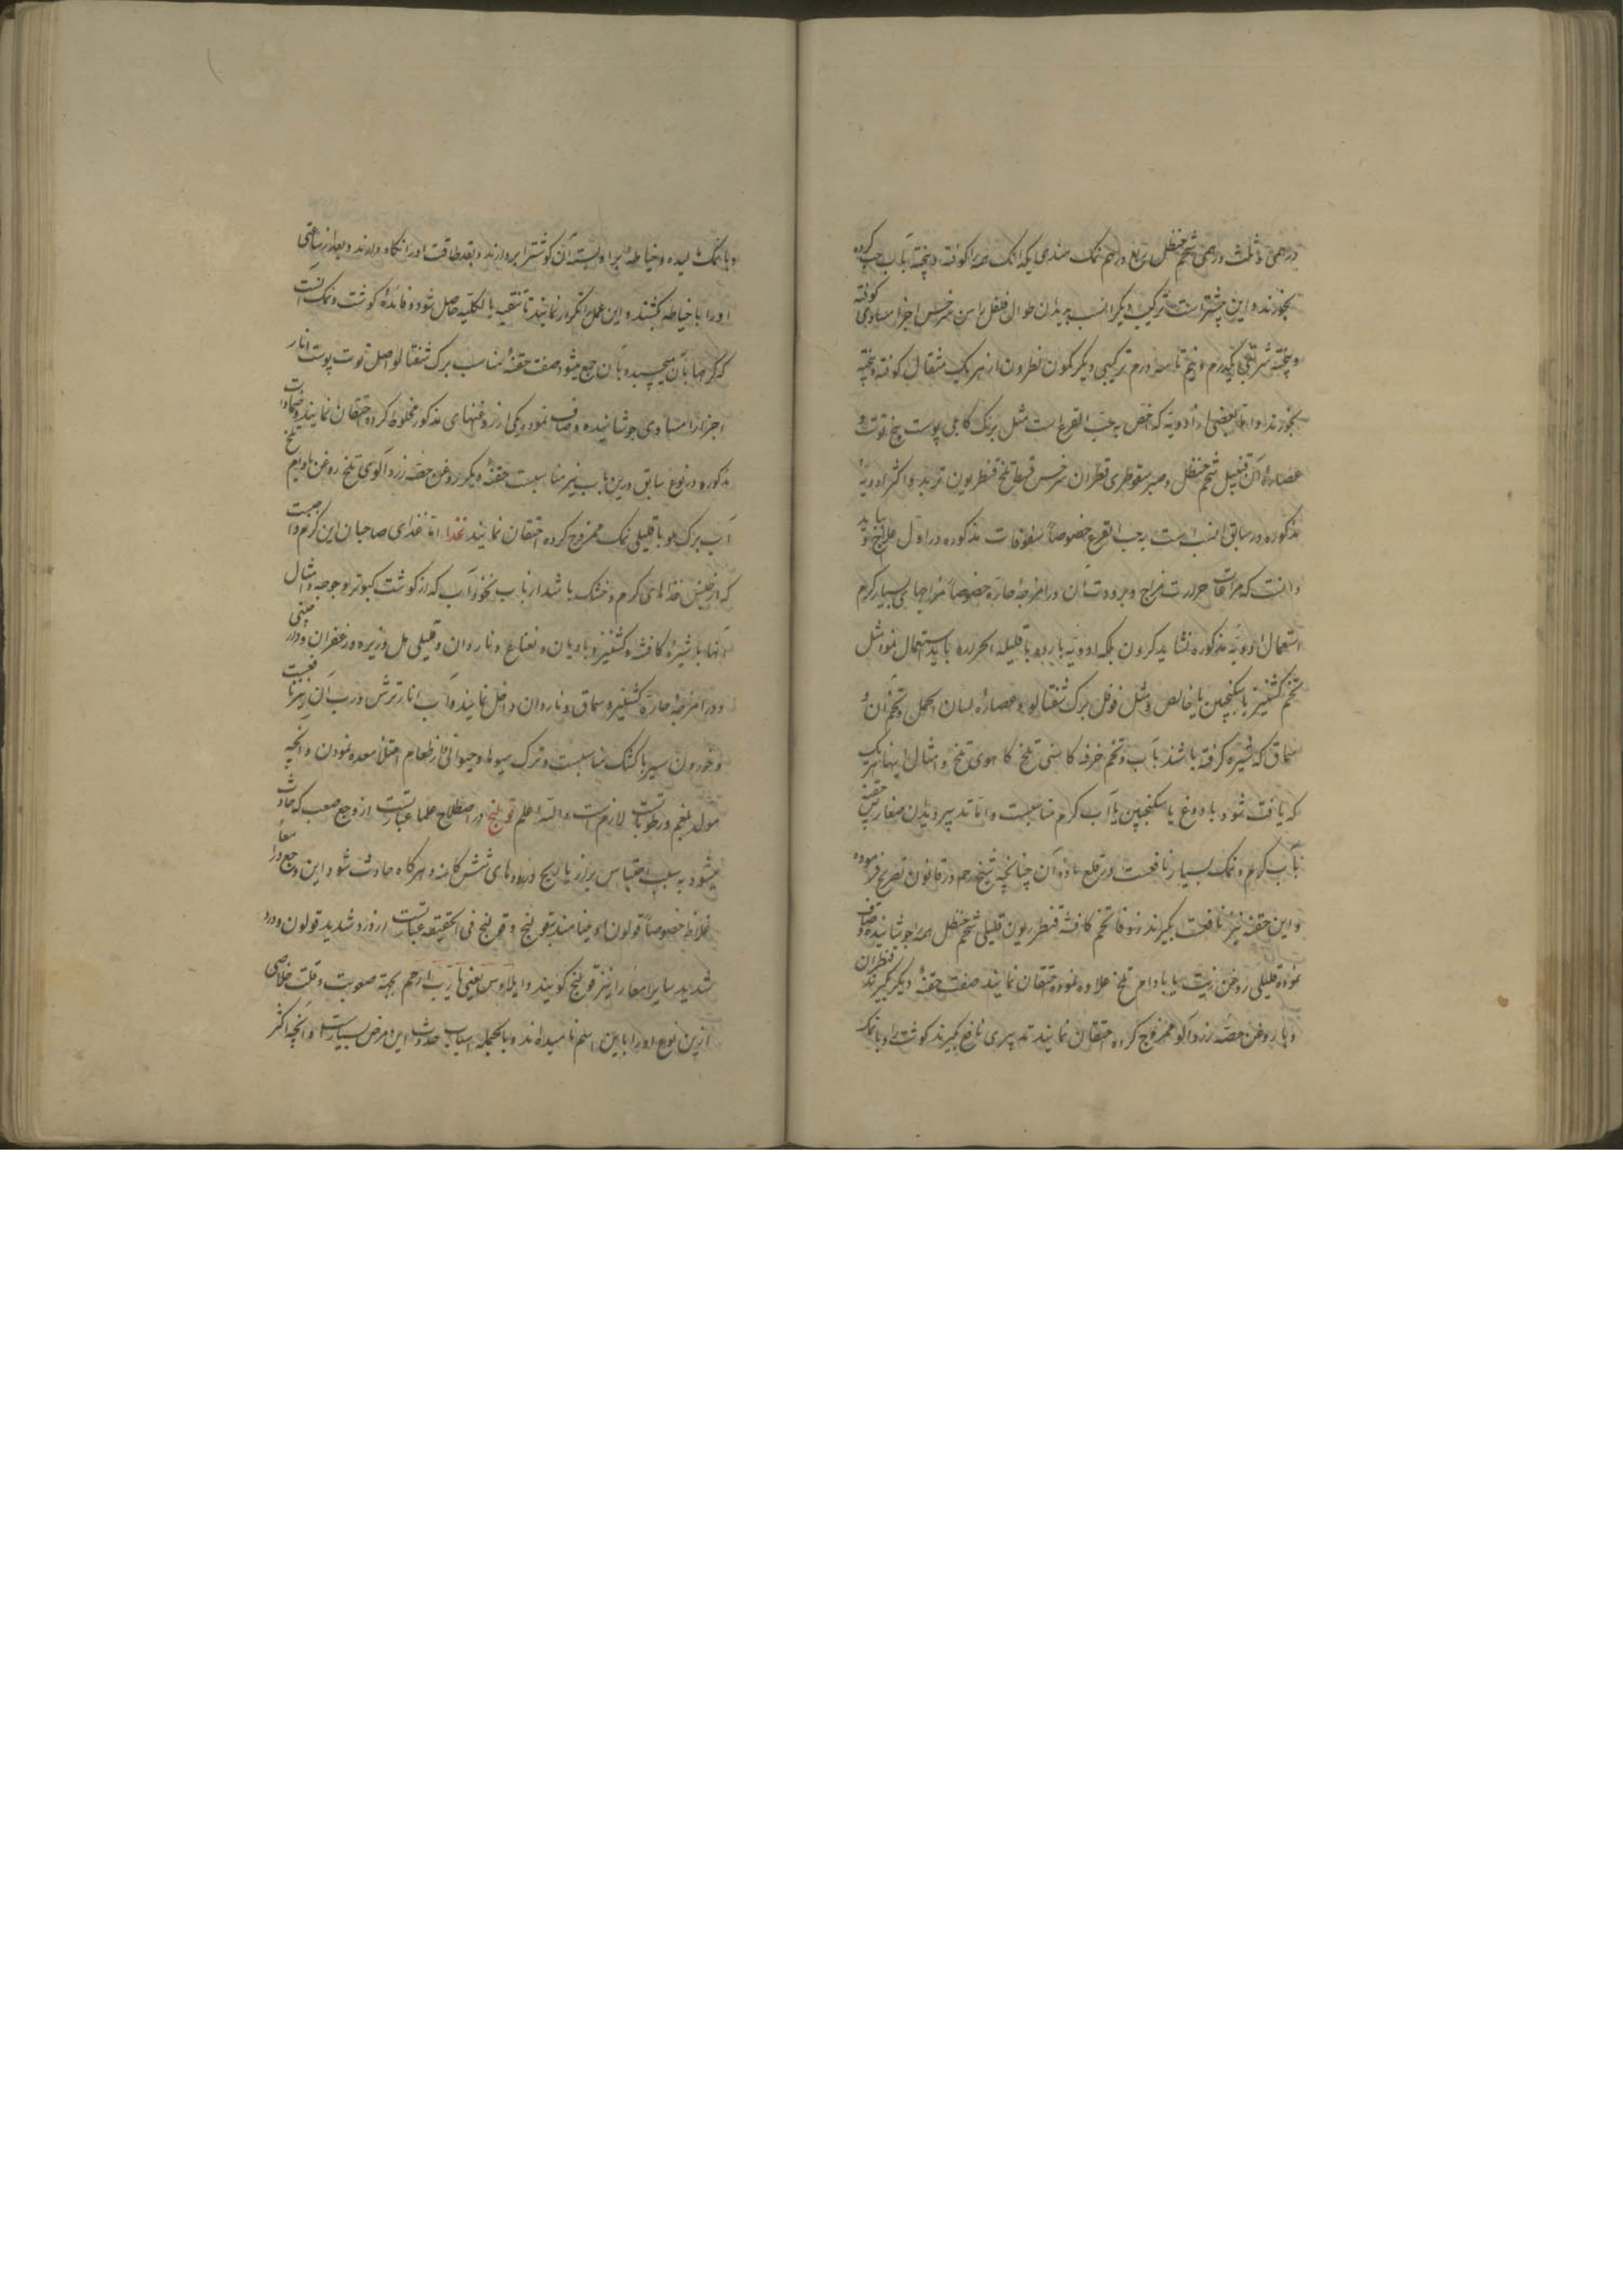 درهمی و ثلث درهمی شحم حنظل ربع درهم نمک هندی یکدانک همه را کوفته و بیخته بآب حب کرده
بخورند و این بیشتر است ترکیب دیگر انسب بدیدان طوال فلفل سرخس اجزا مساوی کوفته
و بیخته شربتی یکدرم و نیم تا سه درم ترکیبی دیگر کمون نطرون از هر یک مثقال کوفته و بیخته
بخورند و اما بعضی از ادویه که اخص به حب القرع است مثل برنک کابلی پوست بیخ توت و
عصاره آن قنبیل شحم حنظل و صبر سقوطری قطران سرخس قسط تلخ قنطریون تربد و اکثر ادویه
مذکوره در سابق انسب است بحب القرع خصوصاً سفوفات مذکوره در اول علاج و باید
دانست که مراعات حرارت مزاج و برودت آن در امزجه حاره خصوصاً مزاجهای بسیار گرم
استعمال ادویه مذکوره نشاید کردن بلکه ادویه بارده یا قلیله الحراره باید استعمال نمود مثل
تخم کشنیز با سکنجبین یا خالص و مثل فوفل برک شفتالو و عصاره لسان الحمل و تخم آن و
سماق که شیره گرفته باشند بآب و تخم خرفه کاسنی تلخ کاهوی تلخ و امثال اینها هر یک
که یافت شود با دوغ یا سکنجبین یا آب گرم مناسبست و اما تدبیر دیدان صغار پس حقنه
بآب گرم و نمک بسیار نافعست در قلع ماده آن چنانچه شیخ رحم در قانون تصریح فرموده
و این حقنه نیز نافعست بگیرند زوفا تخم کافشه قنطریون قلیلی شحم حنظل همه جوشانیده و صاف
نموده قلیلی روغن زیت یا بادام تلخ علاوه نموده احتقان نمایند صفت حقنه دیگر بگیرند قطران
و با روغن خسته زردآلو ممزوج کرده احتقان نمایند تدبیری نافع بگیرند گوشت را و با نمک
و با نمک مالیده و خیاطه برا و بسته آن گوشت را بردارند و بقدر طاقت او را نگاه دارند و بعد از ساعتی
او را با خیاطه بکشند و این عمل را تکرار نمایند تا تنقیه بالکلیه حاصل شود و فایده گوشت و نمک آنست
که کرمها بآن میچسبد و بآن جمع میشود صفت حقنه مناسب برک شفتالو اصل توت پوست انار
اجزا مساوی جوشانیده و صاف نموده و یکی از روغنهای مذکور مخلوط کرده احتقان نمایند و ضمادات
مذکوره در نوع سابق درین باب نیز مناسبست حقنه دیگر روغن خسته زردآلوی تلخ روغن بادام تلخ
آب برک هلو با قلیلی نمک ممزوج کرده احتقان نمایند غذا اما غذای صاحبان این کرم واجبست
که از جنس غذاهای گرم و خشک باشد از باب نخودآب که از گوشت کبوتر و جوجه و امثال
آنها با شیره کافشه و کشنیز و بادیان و نعناع و ناردان و قلیلی هل و زیره و زعفران و دارچینی
و در امزجه حاره کشنیز و سماق و ناردان داخل نمایند و آب انار ترش و رب آن نیز نافعست
و خوردن سیر با کشک مناسبست و ترک میوها و حیوانی و از طعام امتلأ معده نمودن و آنچه
مولد بلغم و رطوبات است لازم است والله اعلم قولنج در اصطلاح علما عبارتست از وجع صعب که حادث
میشود به سبب احتباس براز یا ریح در رودهای شش کانه و هر کاه حادث شود این وجع در امعاء
غلاظ خصوصاً قولون او مینامند بقولنج و قولنج فی الحقیقه عبارتست از درد شدید قولون و درد
شدید سایر امعا را نیز قولنج کویند و ایلاوس یعنی یا رب ارحم بجهته صعوبت و قلت خلاصی
ازین نوع او را باین اسم نامیده اند و بالجمله اسباب حدوث این مرض بسیار است و آنچه اکثر